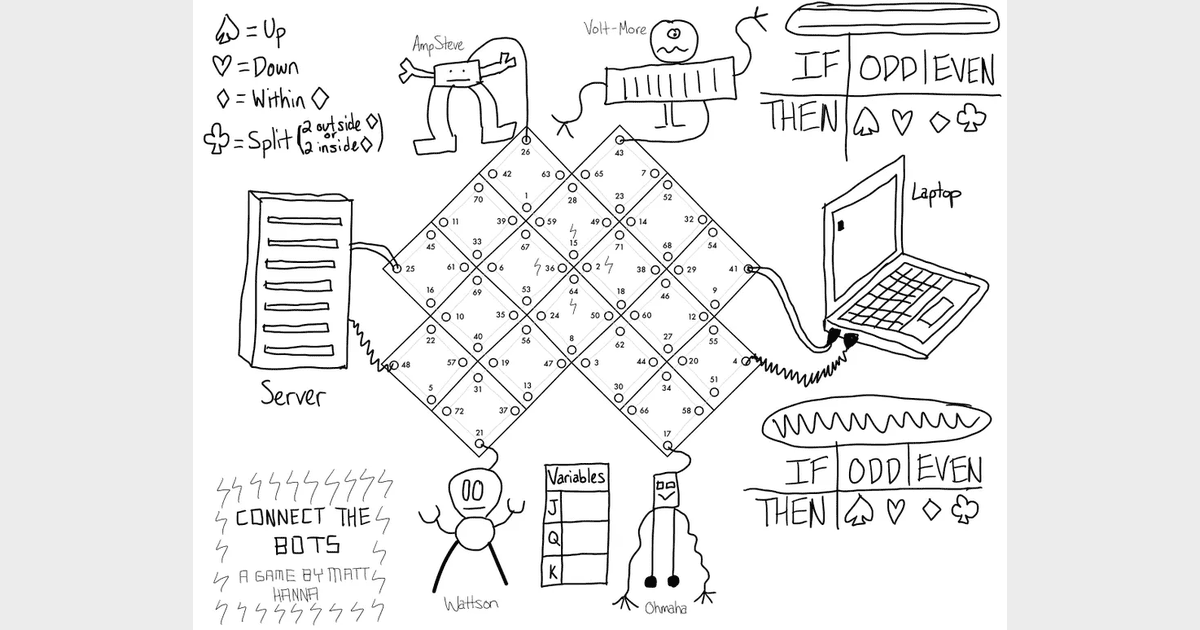 ♠ = Up
♡ = Down
♢ = Within ♢
♧ = Split (2 outside ♢ or 2 inside ♢)
AmpSteve
Volt-More
IF ODD EVEN
THEN ♤ ♡ ♢ ♧
26 43
42 63 65 7
70 1 28 23 52
11 39 59 49 14 32
45 33 67 15 71 68 54
25 61 6 36 2 38 29 41
16 69 53 64 18 46 9
10 35 24 50 60 12
22 40 56 8 62 27 55
48 57 19 47 3 44 20 4
5 31 13 30 34 51
72 37 66 58
21 17
Server
Laptop
IF ODD EVEN
THEN ♤ ♡ ♢ ♧
CONNECT THE
BOTS
A GAME BY MATT
HANNA
Wattson
Variables
J
Q
K
Ohmaha